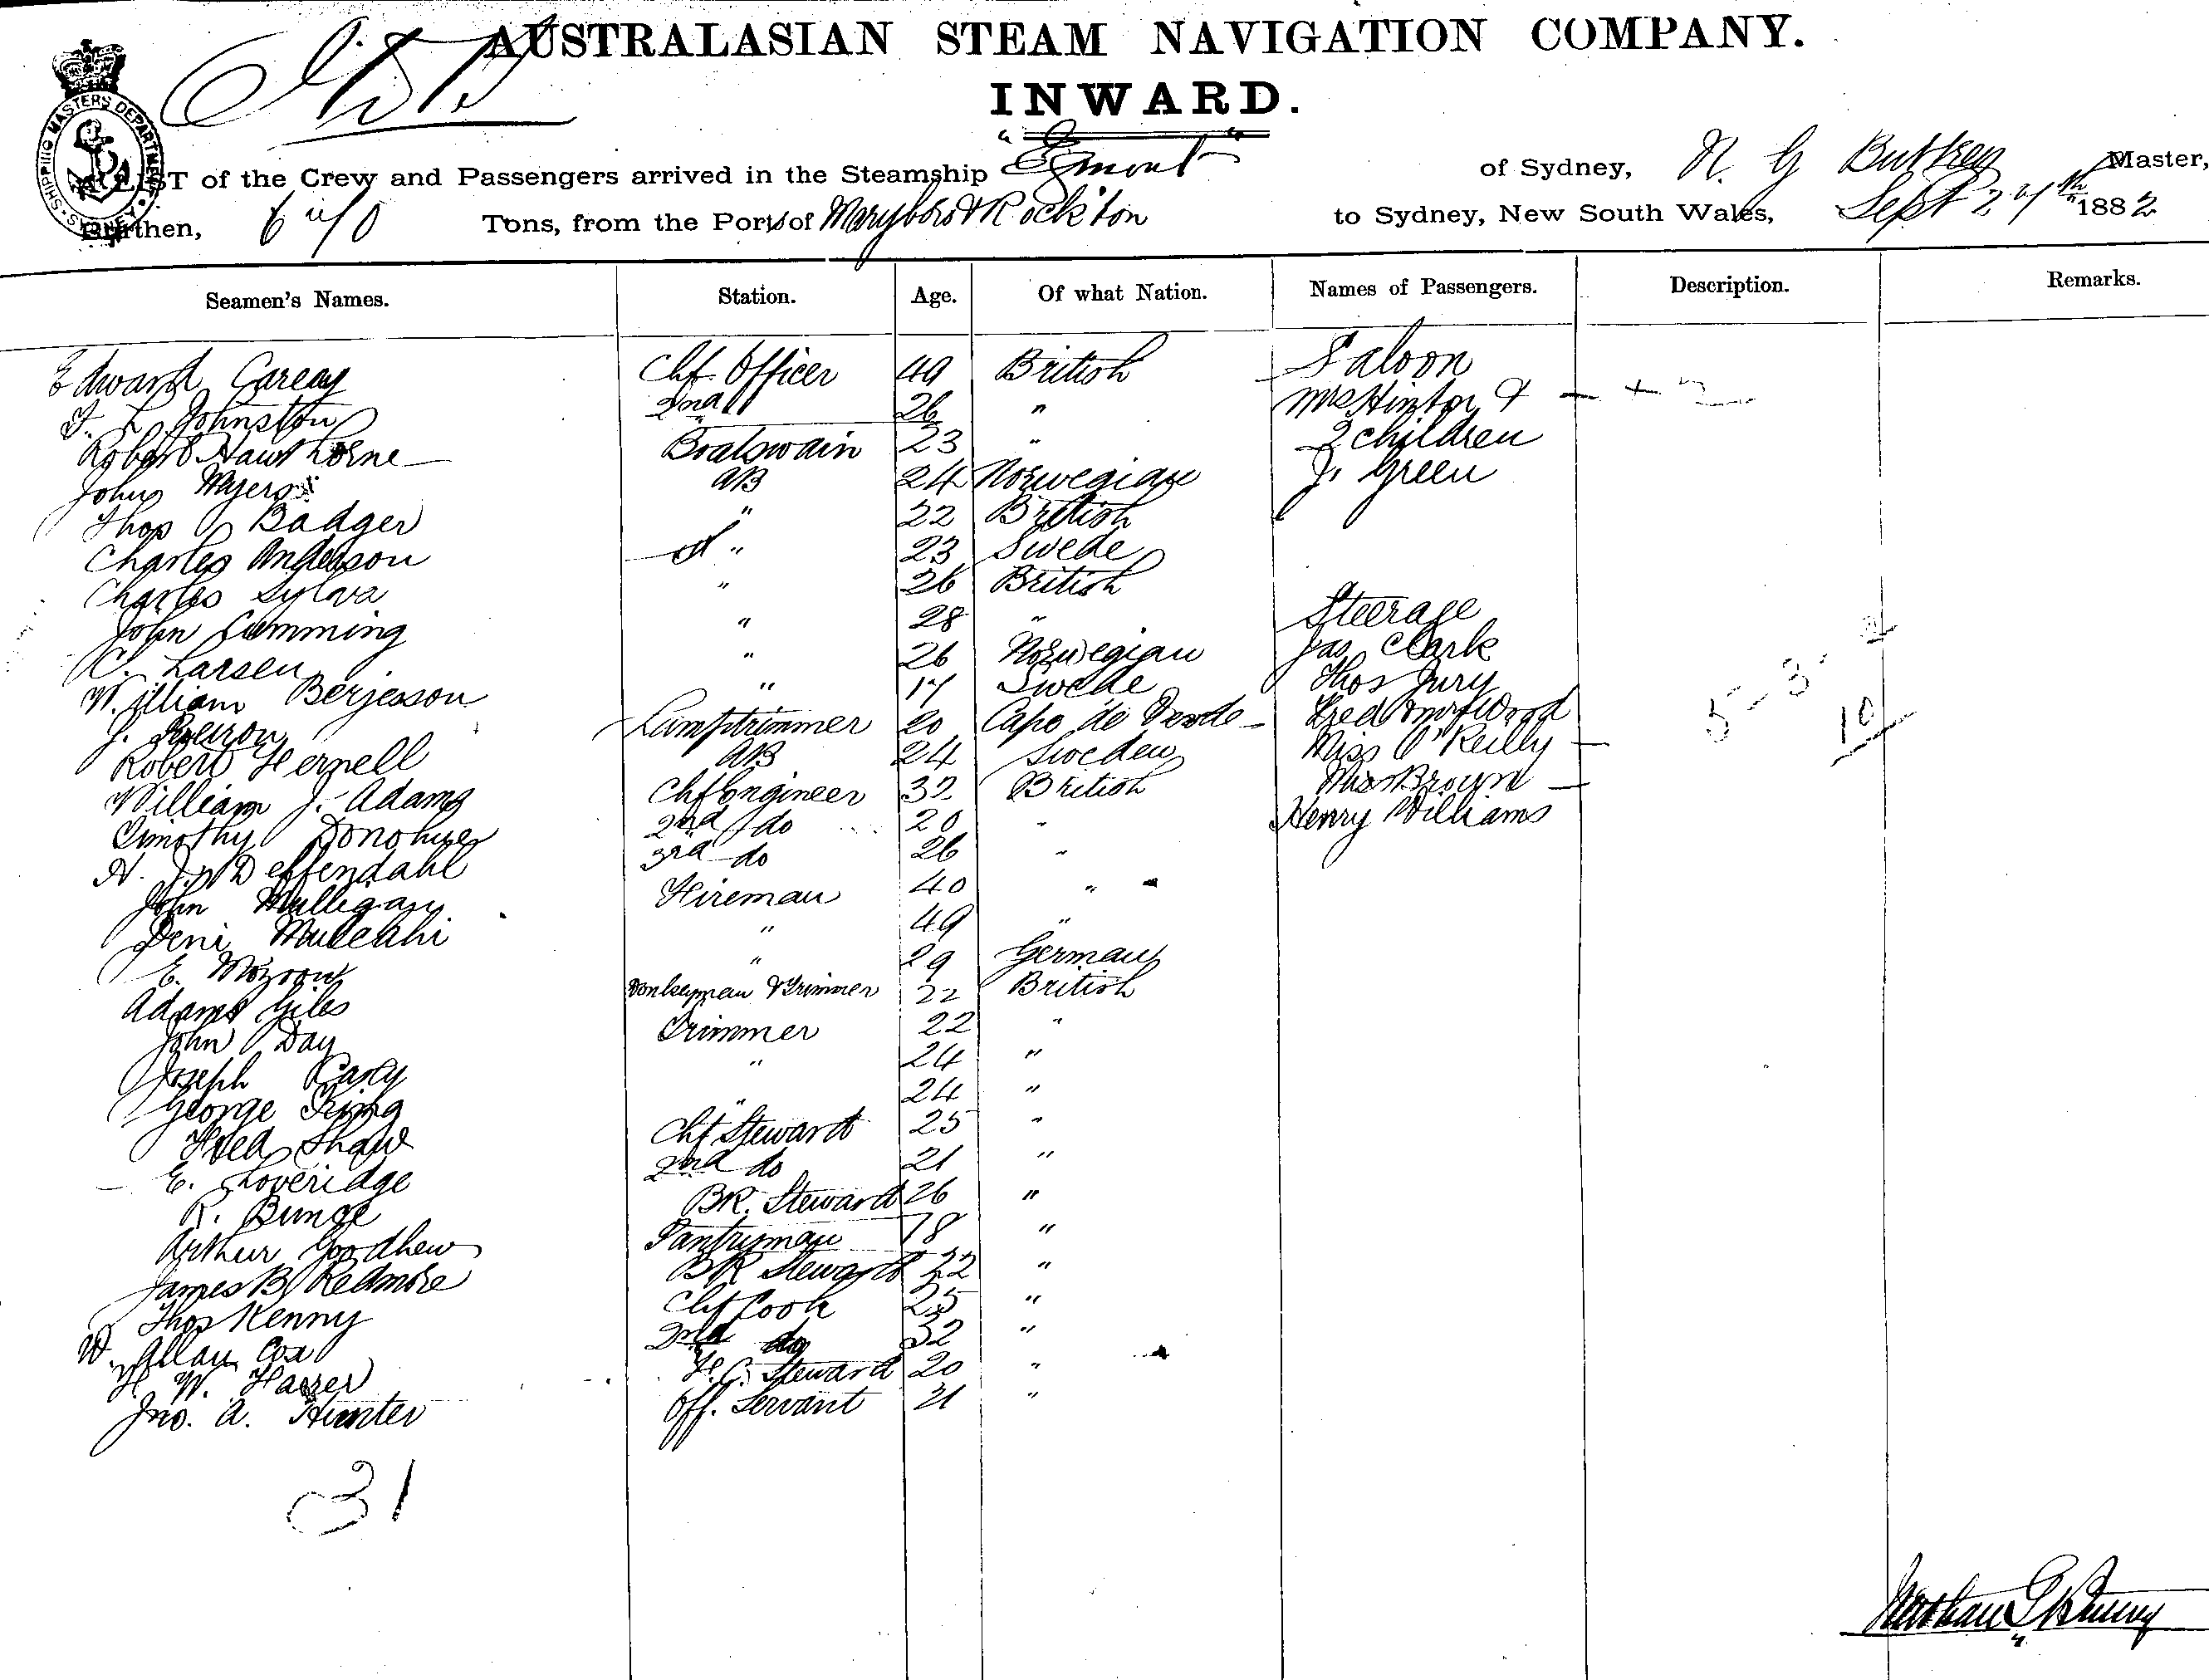 AUSTRALASIAN STEAM NAVIGATION COMPANY.
INWARD.
SHIPPING MASTERS DEPARTMENT SYDNEY
LIST of the Crew and Passengers arrived in the Steamship "Egmont" of Sydney, N. G Master,
Burthen, Tons, from the Ports of Maryboro & Rockton to Sydney, New South Wales, Sept 27th 1882
Seamen's Names. Station. Age. Of what Nation. Names of Passengers. Description. Remarks.
Edward Chf. Officer 49 British Saloon
Johnston 2nd " 26 " Mrs Hinton &
Robert Hawthorne Boatswain 23 " 2 children
John Myers AB 24 Norwegian J. Green
Thos Badger " 22 British
Charles Anderson " 23 Swede
Charles Sylva " 26 British
John Cumming " 28 " Steerage
C. Larsen " 26 Norwegian Jas Clark
William Berjesson " 17 Swede Thos Jury
J. Lamptrimmer 20 Capo de Verde Fred
Robert Hernell AB 24 Sweden Miss O'Reilly
William J. Adams Chf Engineer 32 British Brown
Timothy Donohue 2nd do 20 " Henry Williams
Deffendahl 3rd do 26 "
John Mulligan Fireman 40 "
Deni Mulcahi " 49 "
E. " 29 German
Adams Giles Donkeyman & Trimmer 22 British
John Day Trimmer 22 "
Joseph " 24 "
George King " 24 "
Fred Shaw Chf Steward 25 "
E. Loveridge 2nd do 21 "
R. Bunge BR. Steward 26 "
Arthur Goodhew Pantryman 18 "
James B Redmore BR Steward 22 "
Thos Kenny Chf Cook 25 "
W. Allan Cox 2nd do 32 "
H. W. F.C. Steward 20 "
Jno. A. Hunter Off. Servant 21 "
31